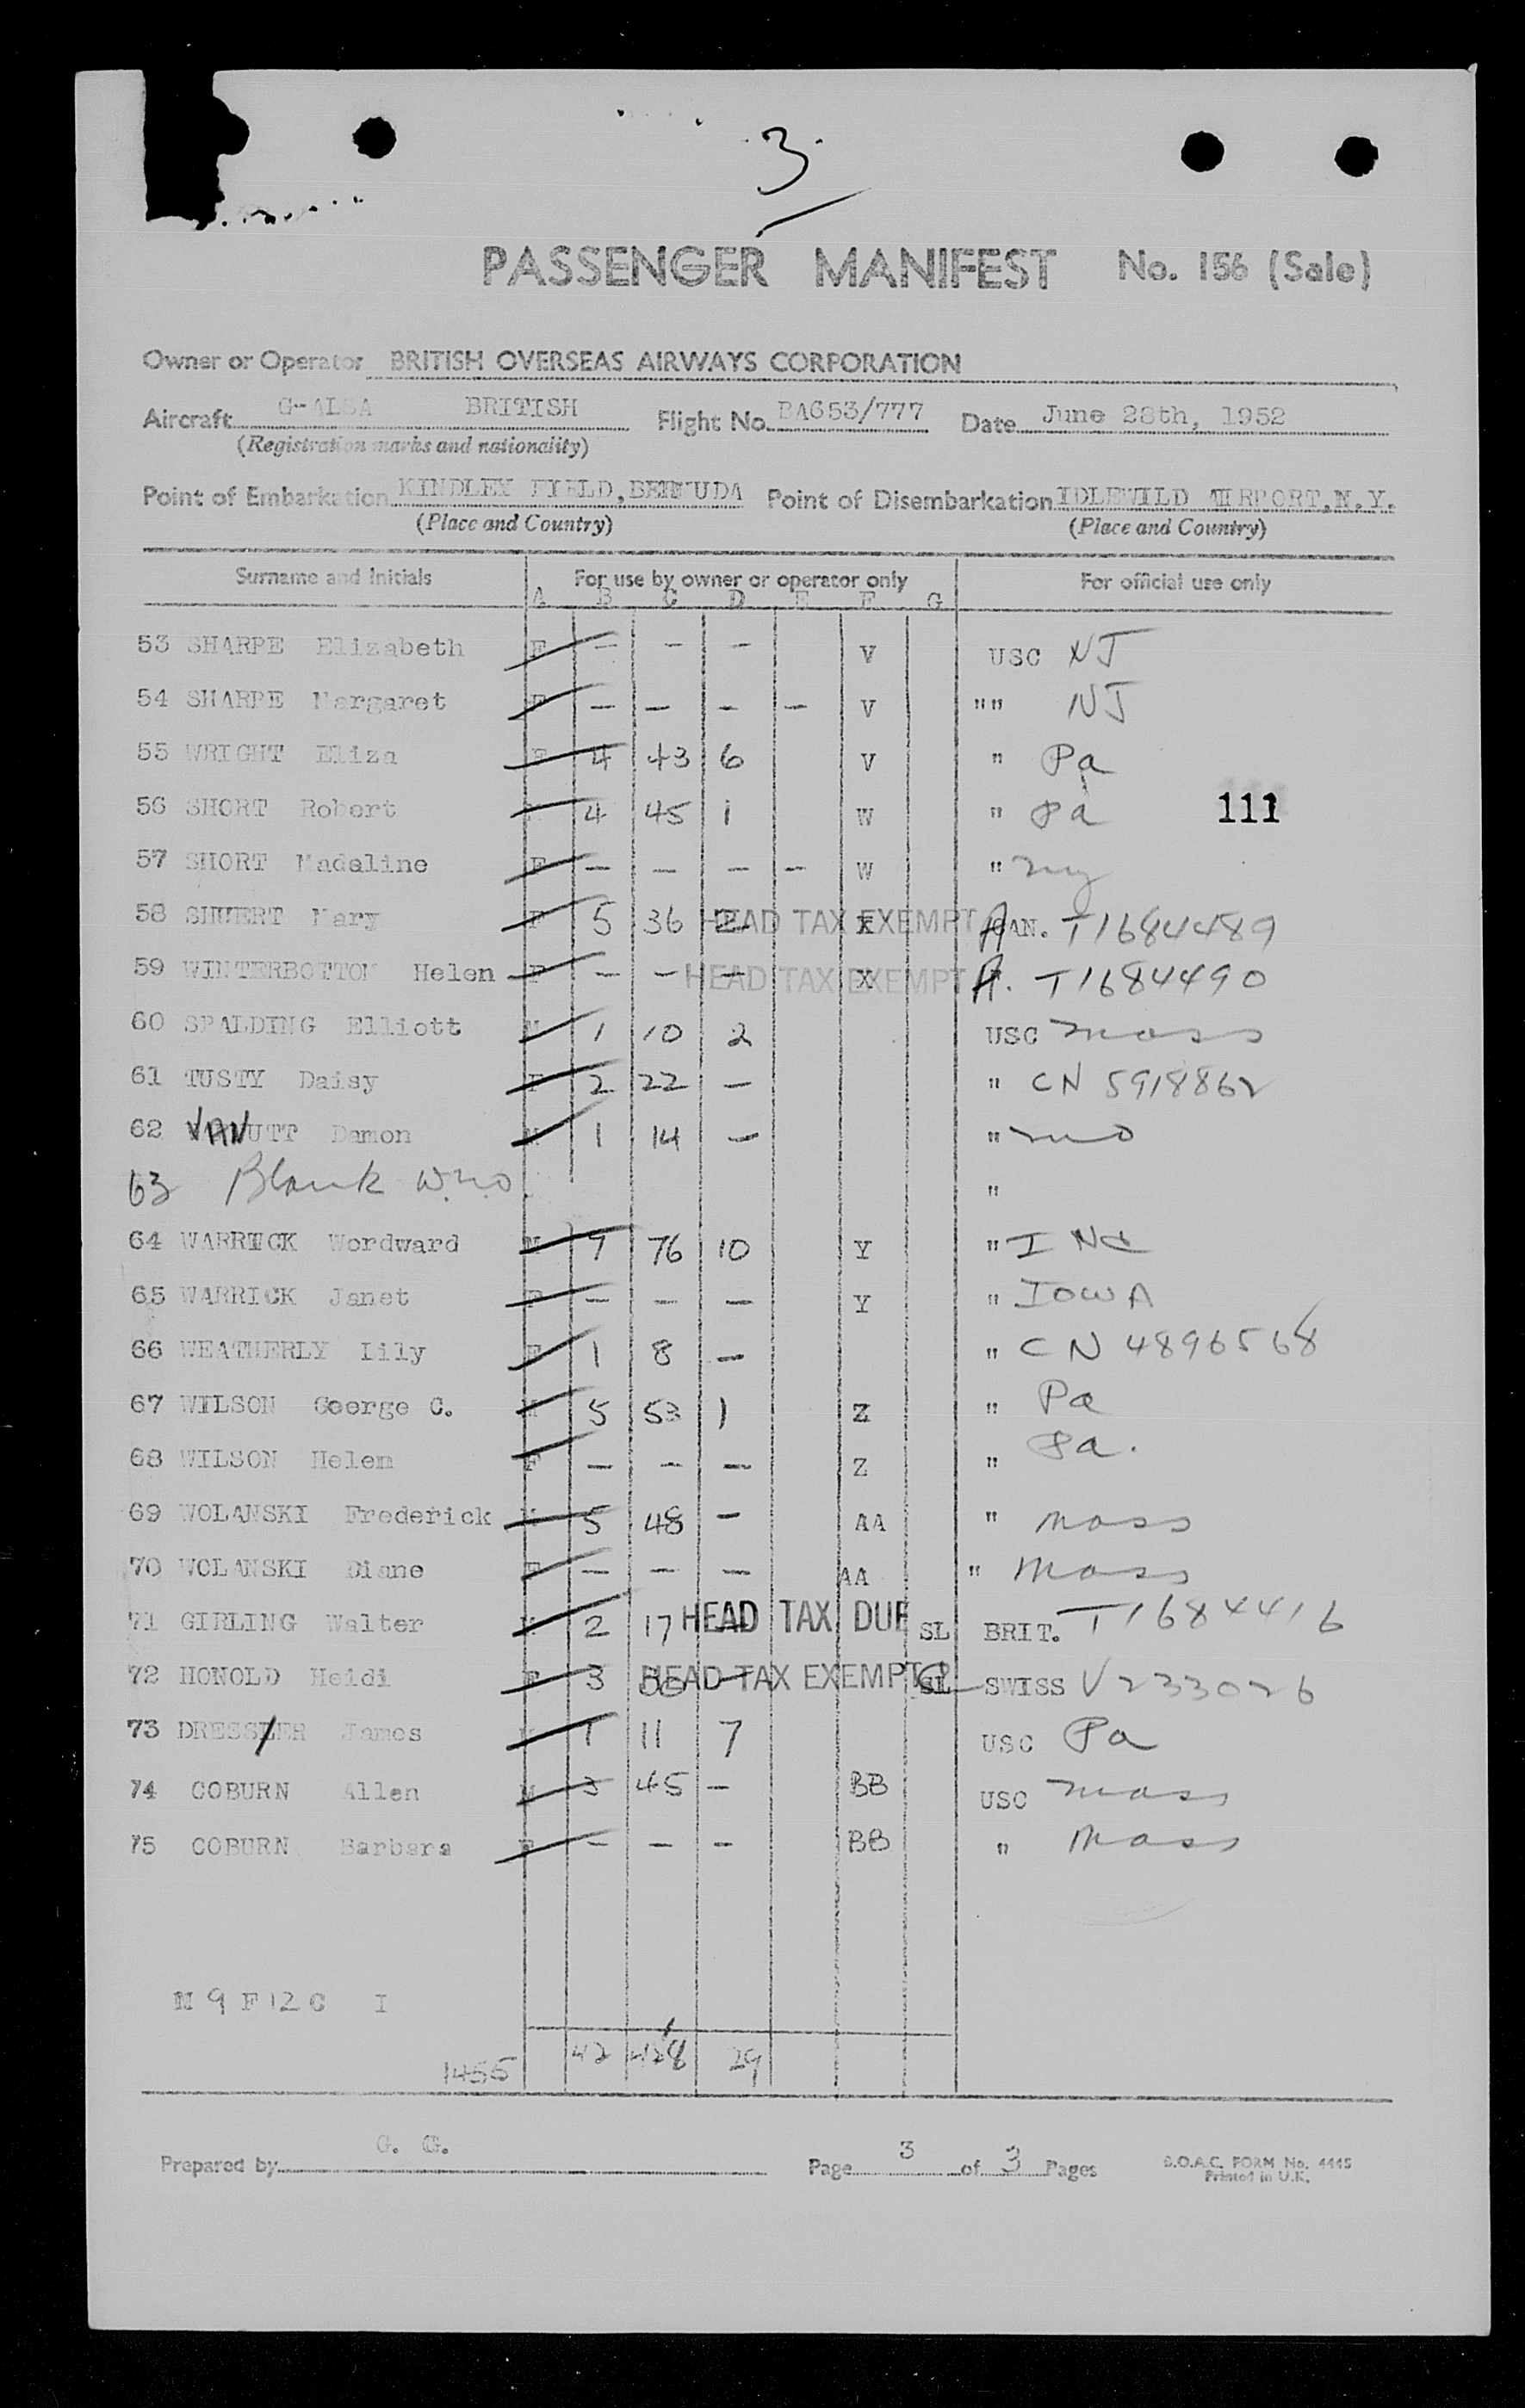 3
PASSENGER MANIFEST No. 156 (Sale)
Owner or Operator BRITISH OVERSEAS AIRWAYS CORPORATION
Aircraft G-ALSA BRITISH Flight No. BA653/777 Date June 28th, 1952
(Registration marks and nationality)
Point of Embarkation KINDLEY FIELD, BERMUDA Point of Disembarkation IDLEWILD AIRPORT, N.Y.
(Place and Country) (Place and Country)
Surname and Initials For use by owner or operator only For official use only
A B C D E F G
53 SHARPE Elizabeth F - - - V USC NJ
54 SHARPE Margaret F - - - - V "" NJ
55 WRIGHT Eliza F 4 43 6 V " Pa
56 SHORT Robert 4 45 1 W " Pa 111
57 SHORT Madeline F - - - - W " ny
58 SHUERT Mary F 5 36 HEAD TAX EXEMPT X CAN. T1684489
59 WINTERBOTTOM Helen F - - - HEAD TAX EXEMPT X A. T1684490
60 SPALDING Elliott M 1 10 2 USC mass
61 TUSTY Daisy F 2 22 - " CN 5918862
62 VANUTT Damon M 1 14 - " mo
63 Blank "
64 WARRICK Wordward M 9 76 10 Y " I
65 WARRICK Janet F - - - Y " IOWA
66 WEATHERLY Lily F 1 8 - " CN 4896568
67 WILSON George C. M 5 53 1 Z " Pa
68 WILSON Helen F - - - Z " Pa.
69 WOLANSKI Frederick M 5 48 - AA " mass
70 WOLANSKI Diane F - - - AA " Mass
71 GIRLING Walter M 2 17 HEAD TAX DUE SL BRIT. T1684416
72 HONOLD Heidi F 3 HEAD TAX EXEMPT SL SWISS V233026
73 DRESSLER James M 1 11 7 USC Pa
74 COBURN Allen M 3 45 - BB USC mass
75 COBURN Barbara F - - - BB " Mass
M 9 F 12 C I
1455 42 428 29
Prepared by G. G. Page 3 of 3 Pages B.O.A.C. FORM No. 4445
Printed in U.K.